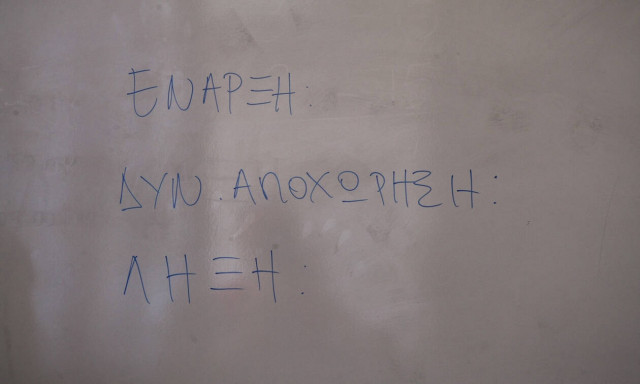 ΕΝΑΡΞΗ:
ΔΥΝ. ΑΠΟΧΩΡΗΣΗ:
ΛΗΞΗ: